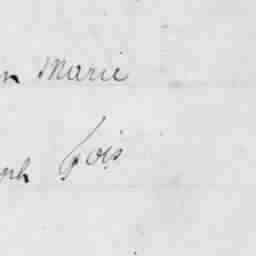 n Marie
ph Gois